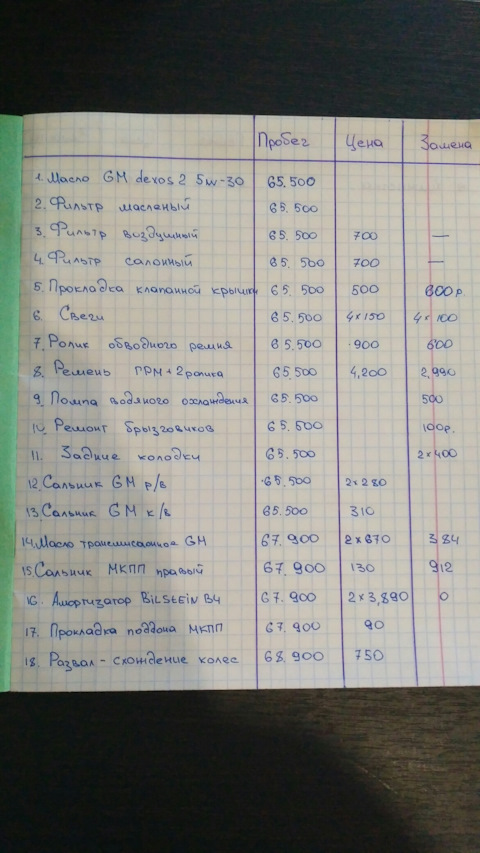 Пробег Цена Замена
1. Масло GM dexos 2 5w-30 65.500
2. Фильтр масленый 65.500
3. Фильтр воздушный 65.500 700 —
4. Фильтр салонный 65.500 700 —
5. Прокладка клапанной крышки 65.500 500 600р.
6 Свечи 65.500 4×150 4×100
7. Ролик обводного ремня 65.500 900 600
8. Ремень ГРМ+2ролика 65.500 4,200 2,990
9 Помпа водяного охлаждения 65.500 500
10. Ремонт брызговиков 65.500 100р.
11. Задние колодки 65.500 2×400
12. Сальник GM р/в 65.500 2×280
13. Сальник GM к/в 65.500 310
14. Масло трансмиссионное GM 67.900 2×670 384
15. Сальник МКПП правый 67.900 130 912
16. Амортизатор BiLSTEiN B4 67.900 2×3,890 0
17. Прокладка поддона МКПП 67.900 90
18. Развал-схождение колес 68.900 750